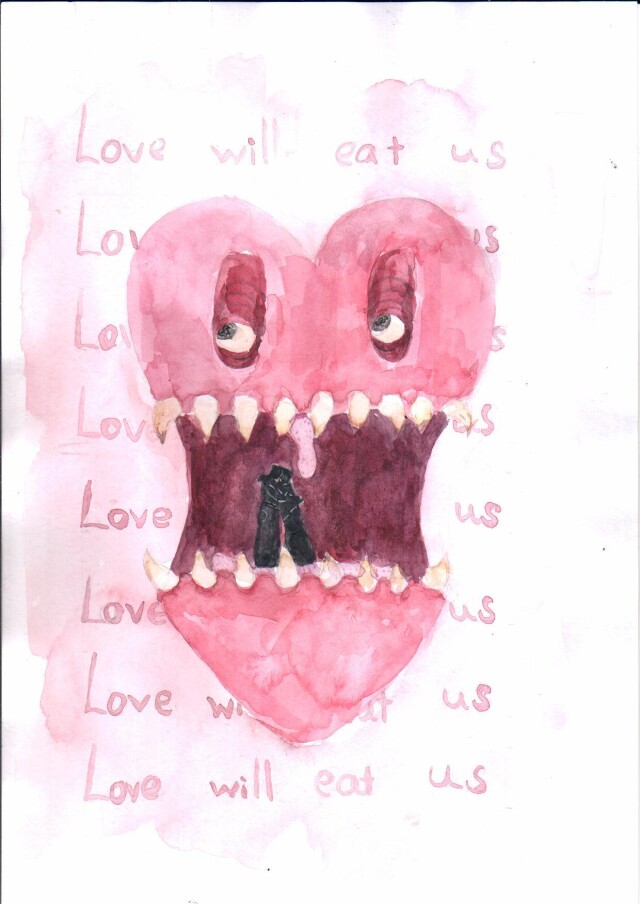 Love will eat us
Lov us
Lov s
Lov us
Love us
Love us
Love wi at us
Love will eat us